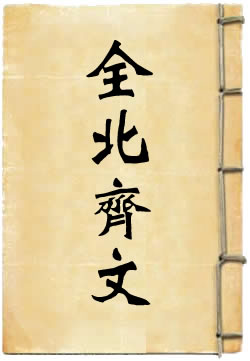 全北齊文